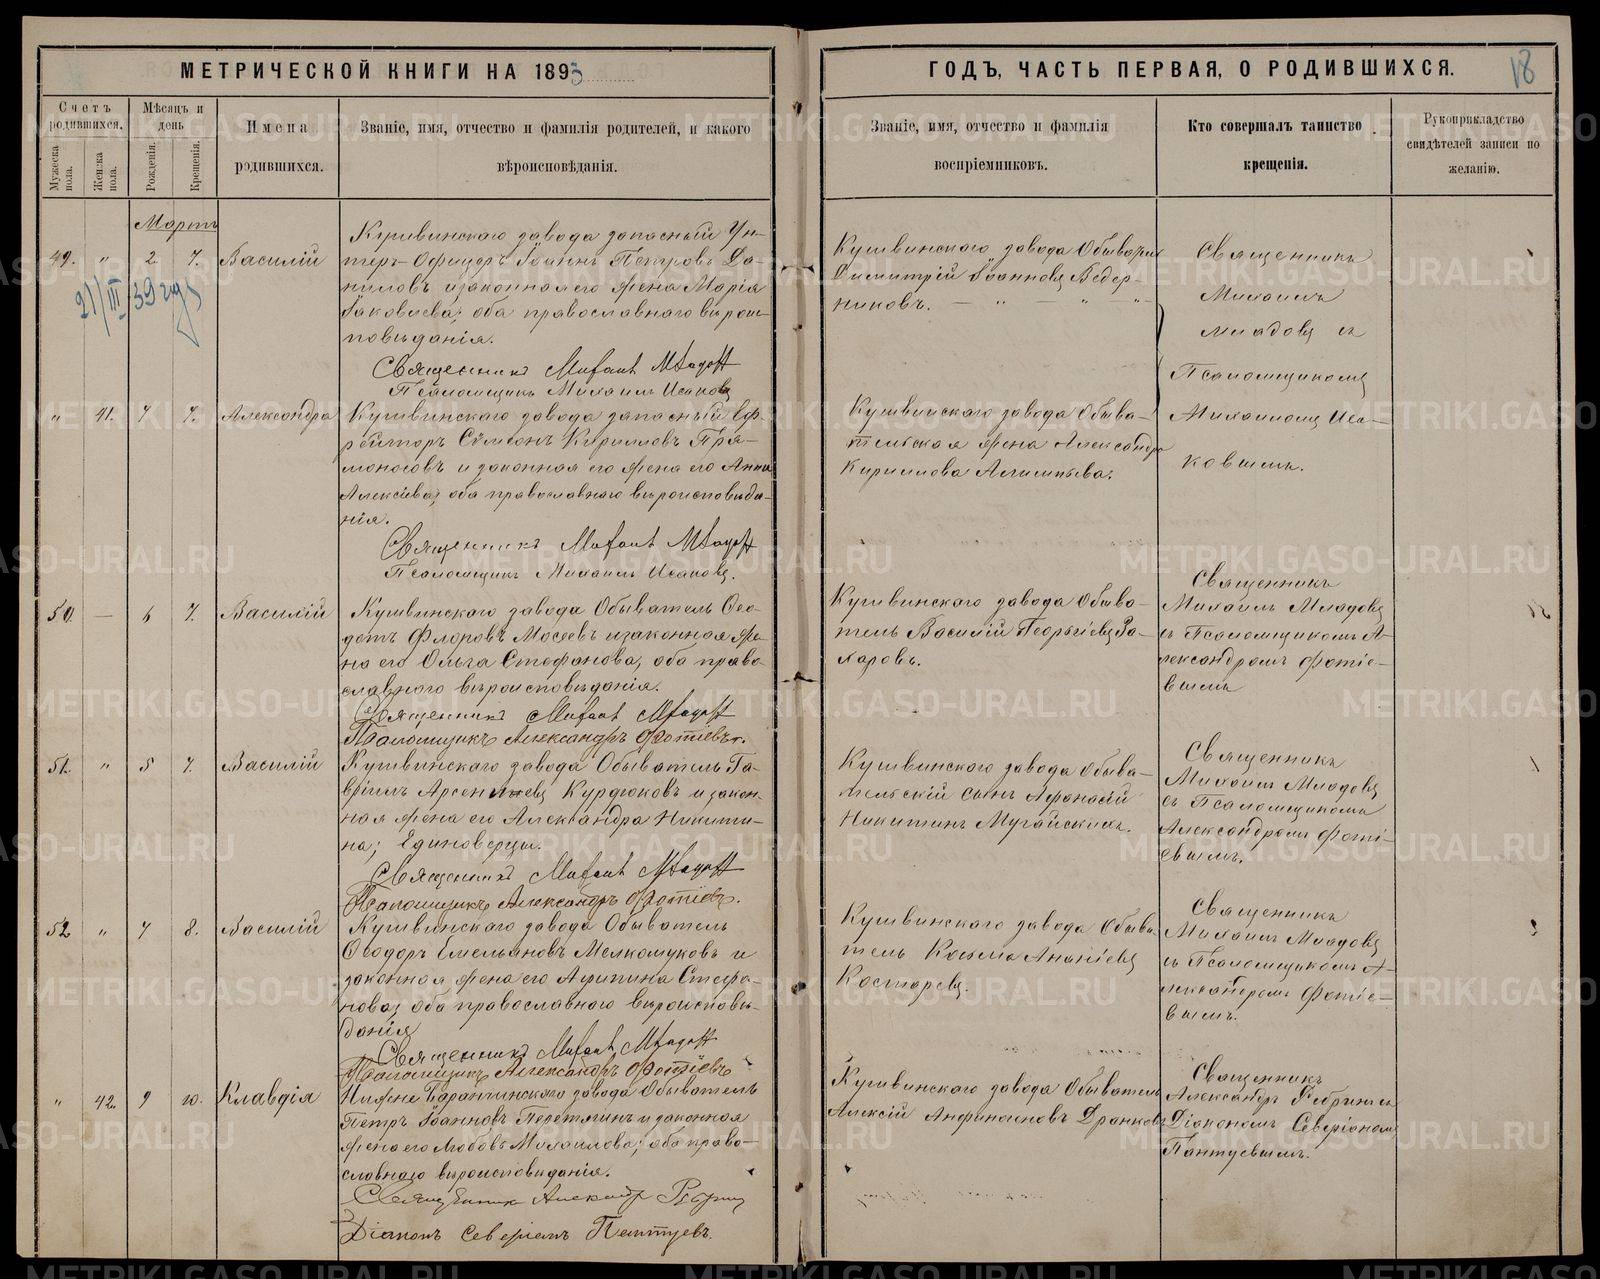 МЕТРИЧЕСКОЙ КНИГИ НА 1893
ГОДЪ, ЧАСТЬ ПЕРВАЯ, О РОДИВШИХСЯ.
18
Счетъ родившихся.
Мужеска пола.
Женска пола.
Мѣсяцъ и день
Рожденія.
Крещенія.
Имена родившихся.
Званіе, имя, отчество и фамилія родителей, и какого
вѣроисповѣданія.
Званіе, имя, отчество и фамилія
воспріемниковъ.
Кто совершалъ таинство
крещенія.
Рукоприкладство
свидѣтелей записи по
желанію.
Мартъ
49. " 2 7. Василій
21/III 39 г
Кушвинскаго завода запасный Ун-
теръ-Офицеръ Іоаннъ Петровъ Да-
ниловъ и законная его жена Марія
Іаковлева; оба православнаго вѣроис-
повѣданія.
Священникъ
Псаломщикъ Михаилъ Исаковъ
Кушвинскаго завода Обыватель
Димитрій Іоанновъ Ведер-
никовъ.
Священникъ
Михаилъ
Младовъ съ
Псаломщикомъ
Михаиломъ Иса-
ковымъ.
" 41. 7 7. Александра
Кушвинскаго завода запасный Еф-
рейторъ Сѵмеонъ Кирилловъ Пря-
моноговъ и законная его жена его Анна
Алексіева; оба православнаго вѣроисповѣда-
нія.
Священникъ
Псаломщикъ Михаилъ Исаковъ.
Кушвинскаго завода Обыва-
тельская жена Александра
Кириллова
50. — 6 7. Василій
Кушвинскаго завода Обыватель Ѳео-
дотъ Флоровъ Мосеевъ и законная же-
на его Ольга Стефанова, оба право-
славнаго вѣроисповѣданія.
Священникъ
Псаломщикъ Александръ Фотіевъ.
Кушвинскаго завода Обыва-
тель Василій Георгіевъ За-
харовъ.
Священникъ
Михаилъ Младовъ
съ Псаломщикомъ А-
лександромъ Фотіе-
вымъ
51. " 5 7. Василій
Кушвинскаго завода Обыватель Га-
вріилъ Арсеніевъ Курдюковъ и закон-
ная жена его Александра Никити-
на; Единоверцы.
Священникъ
Псаломщикъ Александръ Фотіевъ.
Кушвинскаго завода Обыва-
тельскій сынъ Афанасій
Никитинъ Мугайскихъ.
Священникъ
Михаилъ Младовъ
съ Псаломщикомъ
Александромъ Фоті-
евымъ.
52 " 7 8. Василій
Кушвинскаго завода Обыватель
Ѳеодоръ Емельяновъ Мелкомуковъ и
законная жена его Агрипина Стефа-
нова; оба православнаго вѣроисповѣ-
данія
Священникъ
Псаломщикъ Александръ Фотіевъ
Кушвинскаго завода Обыва-
тель Косьма Ананіевъ
Костаревъ.
Священникъ
Михаилъ Младовъ
съ Псаломщикомъ А-
лександромъ Фотіе-
вымъ.
" 42. 9 10. Клавдія
Нижне Баранчинскаго завода Обыватель
Петръ Іоанновъ Перетягинъ и законная
жена его Любовь Михаилова; оба право-
славнаго вѣроисповѣданія.
Священникъ Александръ
Діаконъ Северіанъ Пантуевъ.
Кушвинскаго завода Обыватель
Алексій Анфиногеновъ Дранковъ
Священникъ
Александръ съ
Діакономъ Северіаномъ
Пантуевымъ.
METRIKI.GASO-URAL.RU